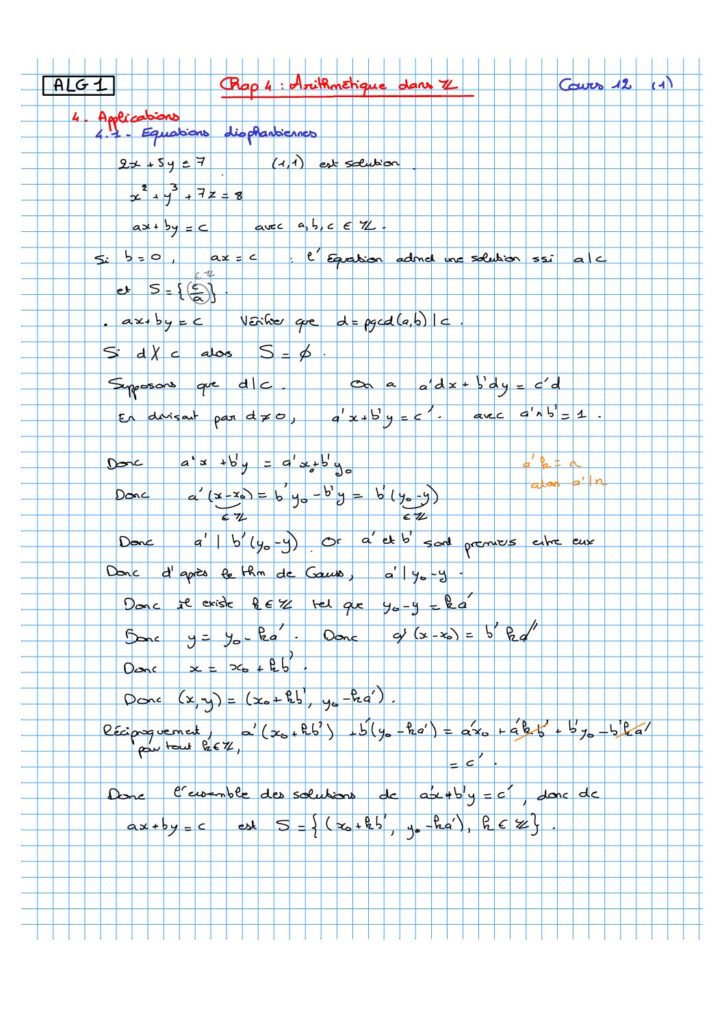 ALG1 Chap 4 : Arithmétique dans ℤ Cours 12 (1)
4. Applications
4.1- Equations diophantiennes
2x + 5y = 7 (1,1) est solution.
x² + y³ + 7z = 8
ax + by = c avec a,b,c ∈ ℤ.
Si b = 0, ax = c : l'équation admet une solution ssi a|c
∈ ℤ
et S = {c/a}.
• ax + by = c Vérifier que d = pgcd(a,b) | c.
Si d ∤ c alors S = ∅.
Supposons que d|c. On a a'dx + b'dy = c'd
En divisant par d ≠ 0, a'x + b'y = c'. avec a'∧b' = 1.
Donc a'x + b'y = a'x₀ + b'y₀ a'k = n
alors a'|n
Donc a'(x-x₀) = b'y₀ - b'y = b'(y₀-y)
∈ ℤ ∈ ℤ
Donc a' | b'(y₀-y). Or a' et b' sont premiers entre eux
Donc d'après le thm de Gauss, a' | y₀-y.
Donc il existe k ∈ ℤ tel que y₀-y = ka'
Donc y = y₀ - ka'. Donc a'(x-x₀) = b'ka'
Donc x = x₀ + kb'.
Donc (x,y) = (x₀+kb', y₀-ka').
Réciproquement, a'(x₀+kb') + b'(y₀-ka') = a'x₀ + a'kb' + b'y₀ - b'ka'
pour tout k∈ℤ,
= c'.
Donc l'ensemble des solutions de a'x+b'y = c', donc de
ax+by = c est S = {(x₀+kb', y₀-ka'), k ∈ ℤ}.